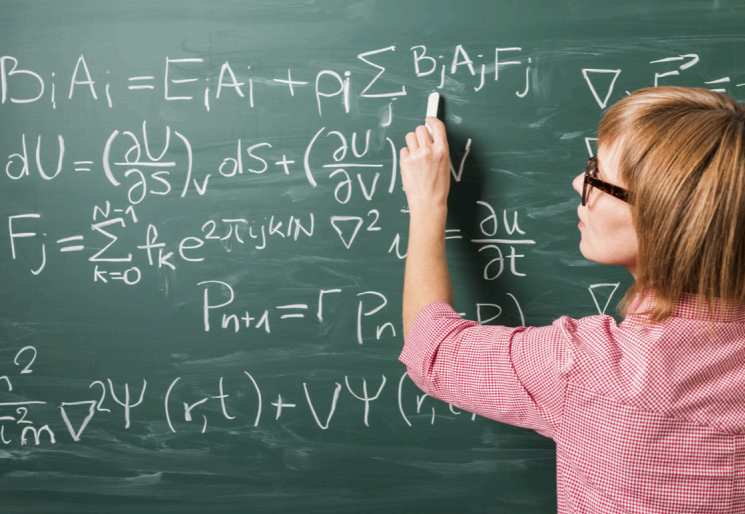 BᵢAᵢ = EᵢAᵢ + ρᵢ ∑ⱼ BⱼAⱼFⱼ ∇ · F⃗ =
dU = (∂U/∂S)ᵥ dS + (∂U/∂V) V
Fⱼ = ∑ₖ₌₀ᴺ⁻¹ fₖ e^(2πijk/N) ∇² = ∂u/∂t
Pₙ₊₁ = r Pₙ P) ∇
ħ²/2m ∇²Ψ(r,t) + VΨ(r,t